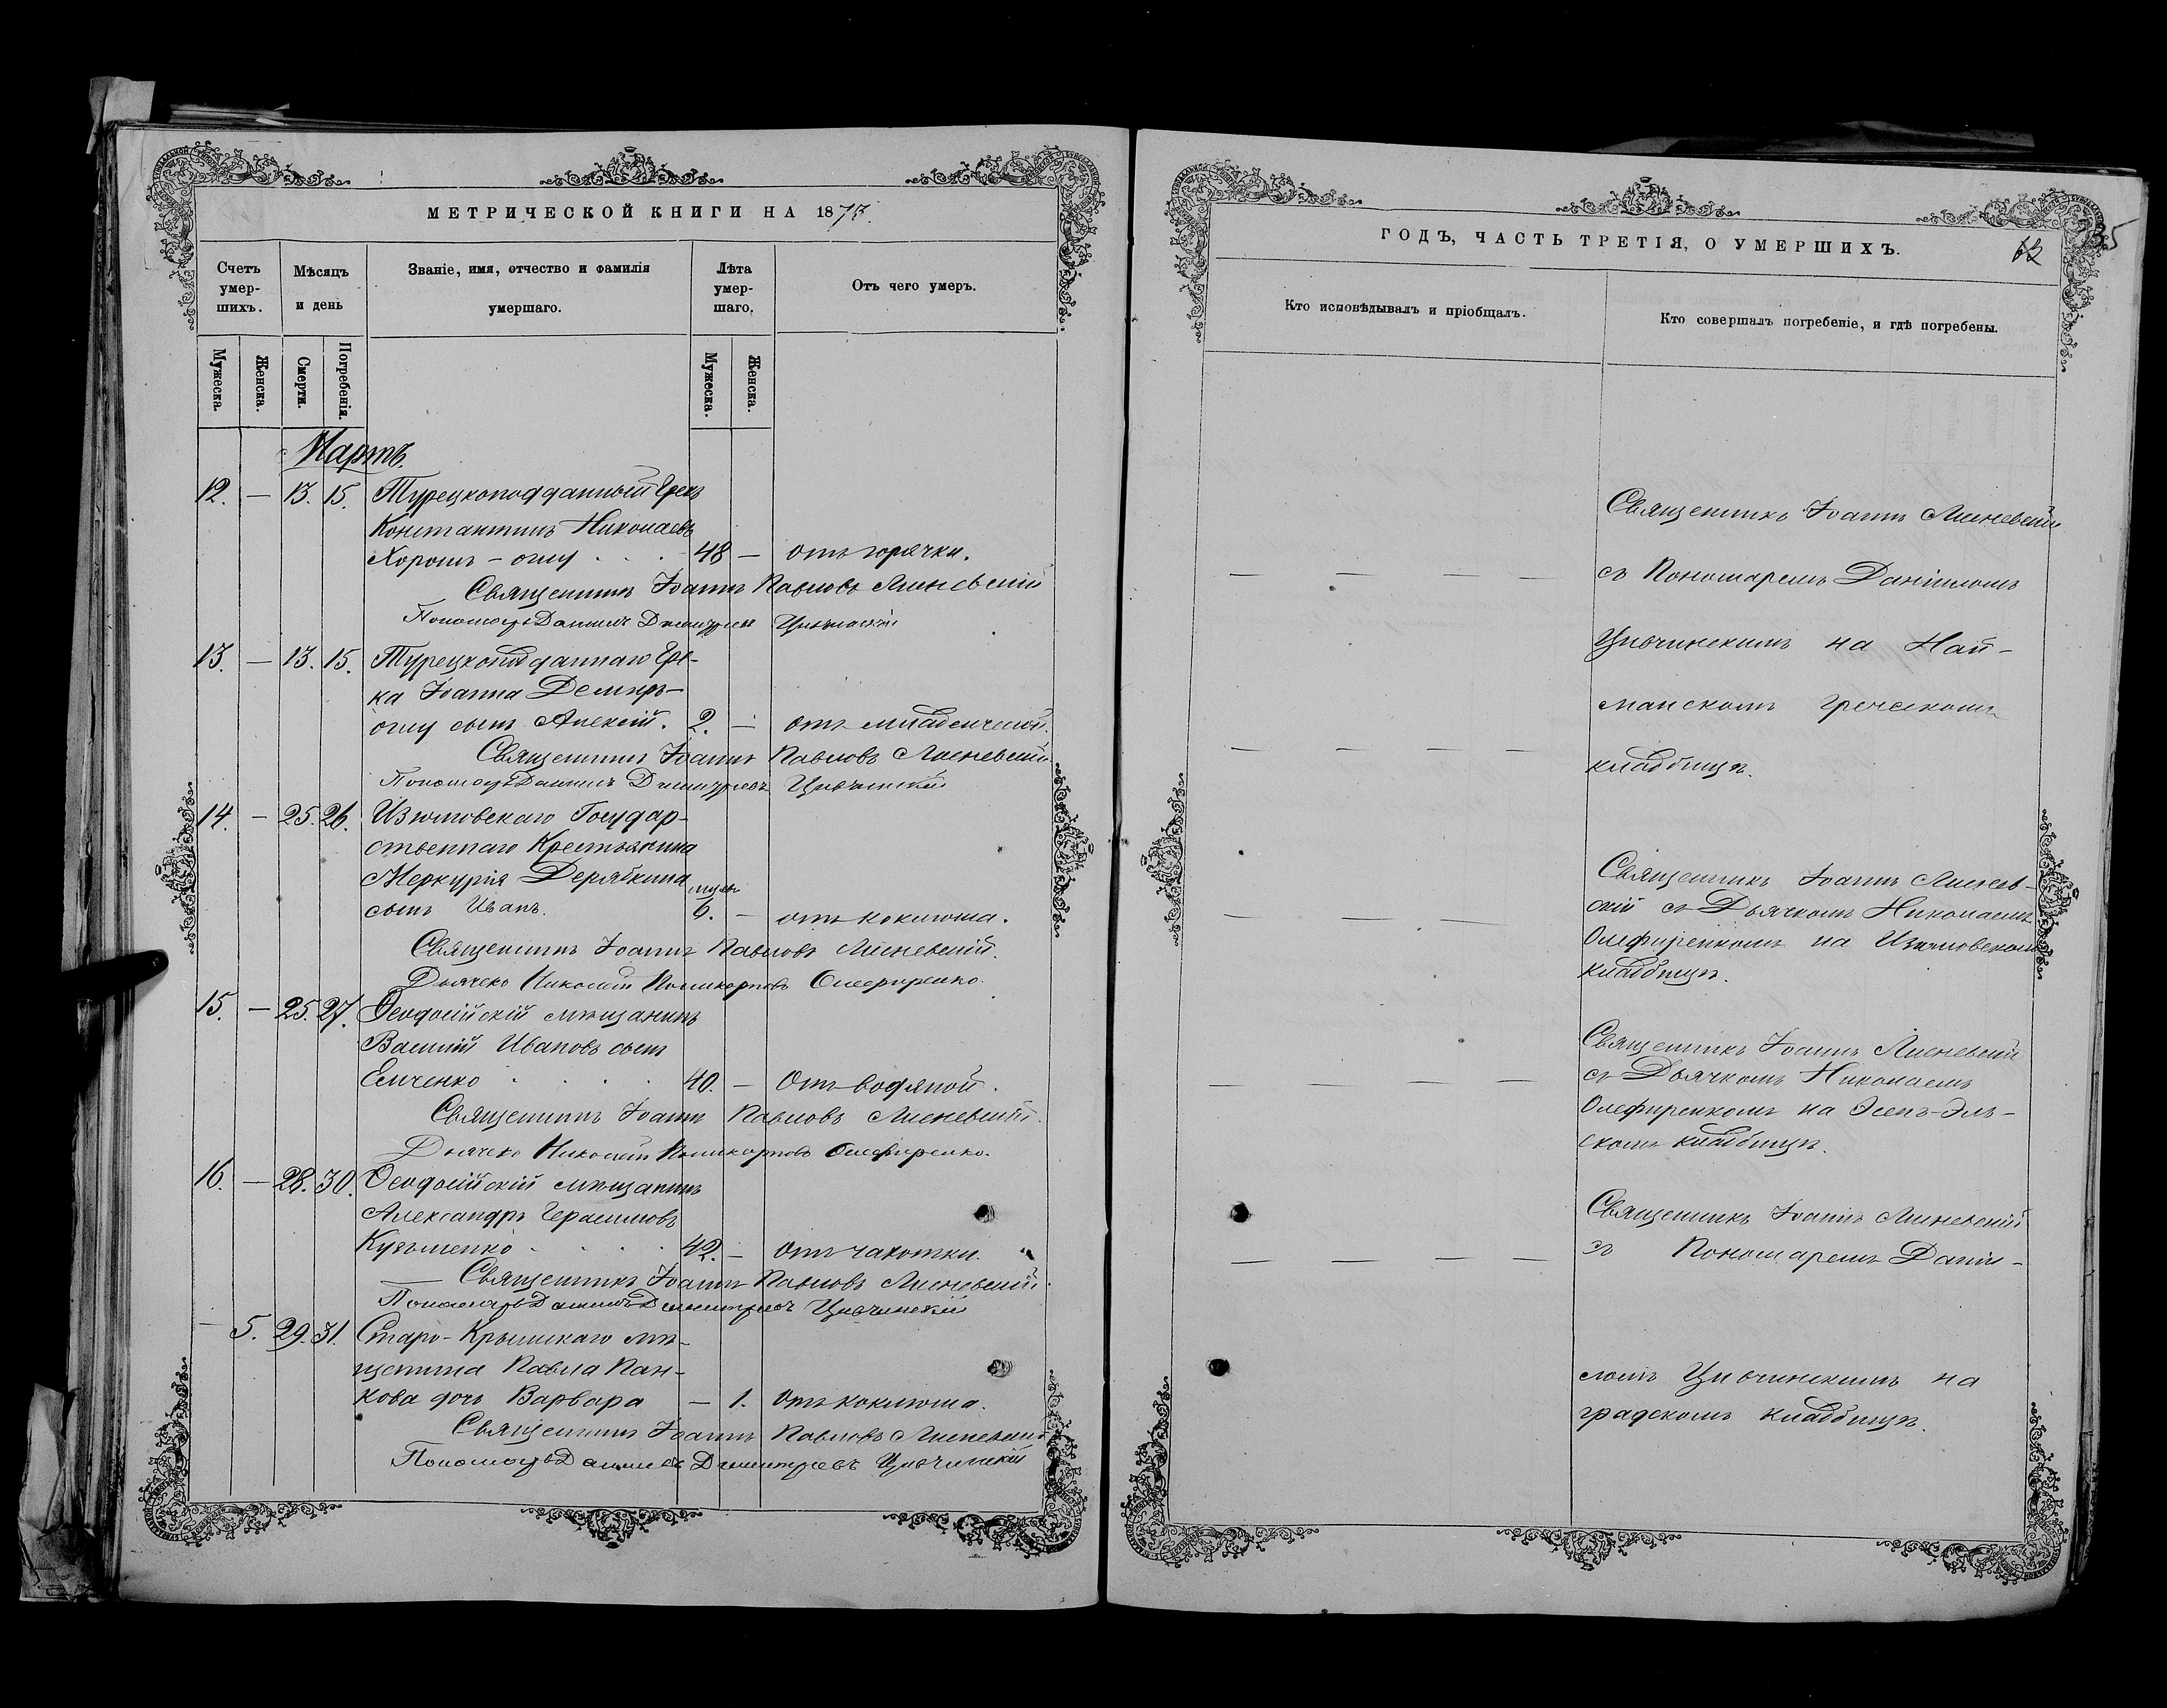 МЕТРИЧЕСКОЙ КНИГИ НА 1873.
Счетъ умер-шихъ.
Мѣсяцъ и день
Званіе, имя, отчество и фамилія умершаго.
Лѣта умер-шаго.
Отъ чего умеръ.
Мужеска.
Женска.
Смерти.
Погребенія.
Мужеска.
Женска.
Мартъ.
12. — 13. 15. Турецкоподданный Грекъ
Константинъ Николаевъ
Хорошъ-оглу . . . 48 — отъ горячки.
Священникъ Іоаннъ Павловъ Лисневскій
Пономарь Даніилъ Димитріевъ Цивчинскій
13. — 13. 15. Турецкоподданнаго Гре-
ка Іоанна Демиръ-
оглу сынъ Алексій. 2. — отъ младенческой.
Священникъ Іоаннъ Павловъ Лисневскій
Пономарь Даніилъ Димитріевъ Цивчинскій
14. — 25. 26. Изюмовскаго Государ-
ственнаго Крестьянина
Меркурія Дерябкина
сынъ Иванъ. 6. — отъ коклюша.
Священникъ Іоаннъ Павловъ Лисневскій.
Дьячекъ Николай Поликарповъ Олефиренко.
15. — 25. 27. Ѳеодосійскій мѣщанинъ
Василій Ивановъ сынъ
Емченко . . . . 40. — Отъ водяной.
Священникъ Іоаннъ Павловъ Лисневскій.
Дьячекъ Николай Поликарповъ Олефиренко.
16. — 28. 30. Ѳеодосійскій мѣщанинъ
Александръ Герасимовъ
Кузьменко . . . . 42. — Отъ чахотки.
Священникъ Іоаннъ Павловъ Лисневскій.
Пономарь Даніилъ Димитріевъ Цивчинскій
— 5. 29. 31. Старо-Крымскаго мѣ-
щанина Павла Пан-
кова дочь Варвара — 1. Отъ коклюша.
Священникъ Іоаннъ Павловъ Лисневскій
Пономарь Даніилъ Димитріевъ Цивчинскій
ГОДЪ, ЧАСТЬ ТРЕТІЯ, О УМЕРШИХЪ.
Кто исповѣдывалъ и пріобщалъ.
Кто совершалъ погребеніе, и гдѣ погребены.
Священникъ Іоаннъ Лисневскій
съ Пономаремъ Даніиломъ
Цивчинскимъ на Най-
манскомъ греческомъ
кладбищѣ.
Священникъ Іоаннъ Лиснев-
скій съ Дьячкомъ Николаемъ
Олефиренкомъ на Изюмовскомъ
кладбищѣ.
Священникъ Іоаннъ Лисневскій
съ Дьячкомъ Николаемъ
Олефиренкомъ на Эсенъ-Эль-
скомъ кладбищѣ.
Священникъ Іоаннъ Лисневскій
съ Пономаремъ Даніи-
ломъ Цивчинскимъ на
градскомъ кладбищѣ.